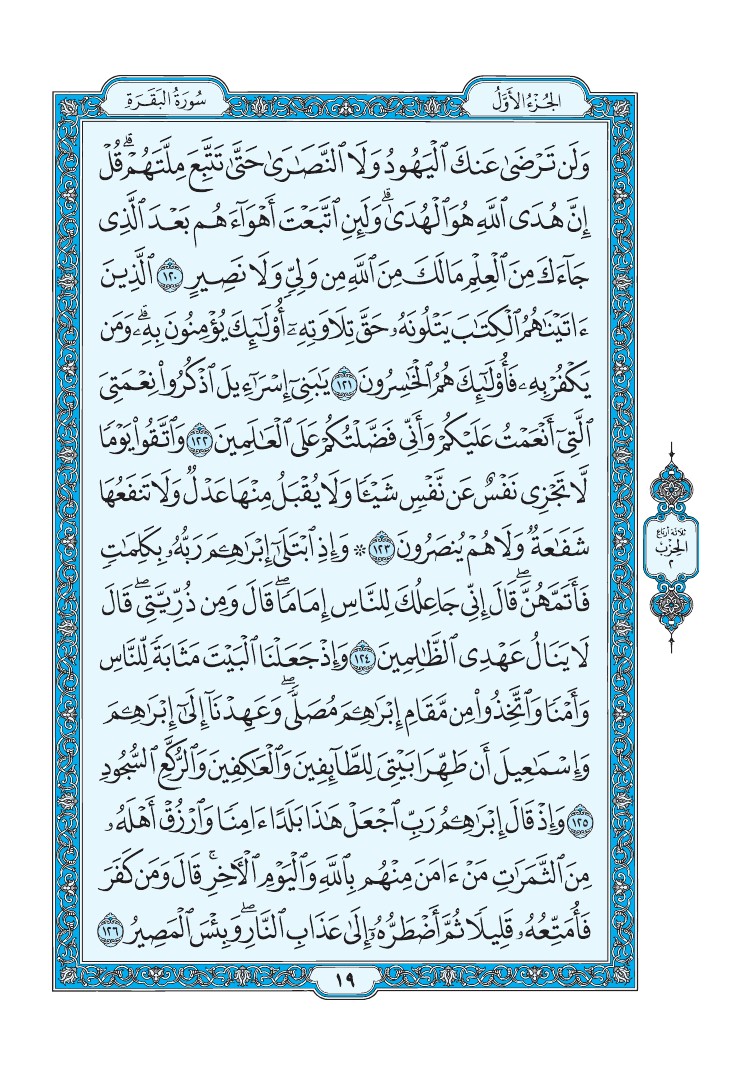 الجُزْءُ الأَوَّلُ
سُورَةُ البَقَرَةِ
وَلَن تَرْضَىٰ عَنكَ ٱلْيَهُودُ وَلَا ٱلنَّصَـٰرَىٰ حَتَّىٰ تَتَّبِعَ مِلَّتَهُمْ ۗ قُلْ
إِنَّ هُدَى ٱللَّهِ هُوَ ٱلْهُدَىٰ ۗ وَلَئِنِ ٱتَّبَعْتَ أَهْوَآءَهُم بَعْدَ ٱلَّذِى
جَآءَكَ مِنَ ٱلْعِلْمِ مَالَكَ مِنَ ٱللَّهِ مِن وَلِىٍّ وَلَا نَصِيرٍ ١٢٠ ٱلَّذِينَ
ءَاتَيْنَـٰهُمُ ٱلْكِتَـٰبَ يَتْلُونَهُۥ حَقَّ تِلَاوَتِهِۦٓ أُو۟لَـٰٓئِكَ يُؤْمِنُونَ بِهِۦ ۗ وَمَن
يَكْفُرْ بِهِۦ فَأُو۟لَـٰٓئِكَ هُمُ ٱلْخَـٰسِرُونَ ١٢١ يَـٰبَنِىٓ إِسْرَٰٓءِيلَ ٱذْكُرُوا۟ نِعْمَتِىَ
ٱلَّتِىٓ أَنْعَمْتُ عَلَيْكُمْ وَأَنِّى فَضَّلْتُكُمْ عَلَى ٱلْعَـٰلَمِينَ ١٢٢ وَٱتَّقُوا۟ يَوْمًا
لَّا تَجْزِى نَفْسٌ عَن نَّفْسٍ شَيْـًٔا وَلَا يُقْبَلُ مِنْهَا عَدْلٌ وَلَا تَنفَعُهَا
شَفَـٰعَةٌ وَلَا هُمْ يُنصَرُونَ ١٢٣ ۞ وَإِذِ ٱبْتَلَىٰٓ إِبْرَٰهِـۧمَ رَبُّهُۥ بِكَلِمَـٰتٍ
فَأَتَمَّهُنَّ ۖ قَالَ إِنِّى جَاعِلُكَ لِلنَّاسِ إِمَامًا ۖ قَالَ وَمِن ذُرِّيَّتِى ۖ قَالَ
لَا يَنَالُ عَهْدِى ٱلظَّـٰلِمِينَ ١٢٤ وَإِذْ جَعَلْنَا ٱلْبَيْتَ مَثَابَةً لِّلنَّاسِ
وَأَمْنًا وَٱتَّخِذُوا۟ مِن مَّقَامِ إِبْرَٰهِـۧمَ مُصَلًّى ۖ وَعَهِدْنَآ إِلَىٰٓ إِبْرَٰهِـۧمَ
وَإِسْمَـٰعِيلَ أَن طَهِّرَا بَيْتِىَ لِلطَّآئِفِينَ وَٱلْعَـٰكِفِينَ وَٱلرُّكَّعِ ٱلسُّجُودِ
١٢٥ وَإِذْ قَالَ إِبْرَٰهِـۧمُ رَبِّ ٱجْعَلْ هَـٰذَا بَلَدًا ءَامِنًا وَٱرْزُقْ أَهْلَهُۥ
مِنَ ٱلثَّمَرَٰتِ مَنْ ءَامَنَ مِنْهُم بِٱللَّهِ وَٱلْيَوْمِ ٱلْـَٔاخِرِ ۖ قَالَ وَمَن كَفَرَ
فَأُمَتِّعُهُۥ قَلِيلًا ثُمَّ أَضْطَرُّهُۥٓ إِلَىٰ عَذَابِ ٱلنَّارِ ۖ وَبِئْسَ ٱلْمَصِيرُ ١٢٦
ثلاثة أرباع
الحزب
٢
١٩